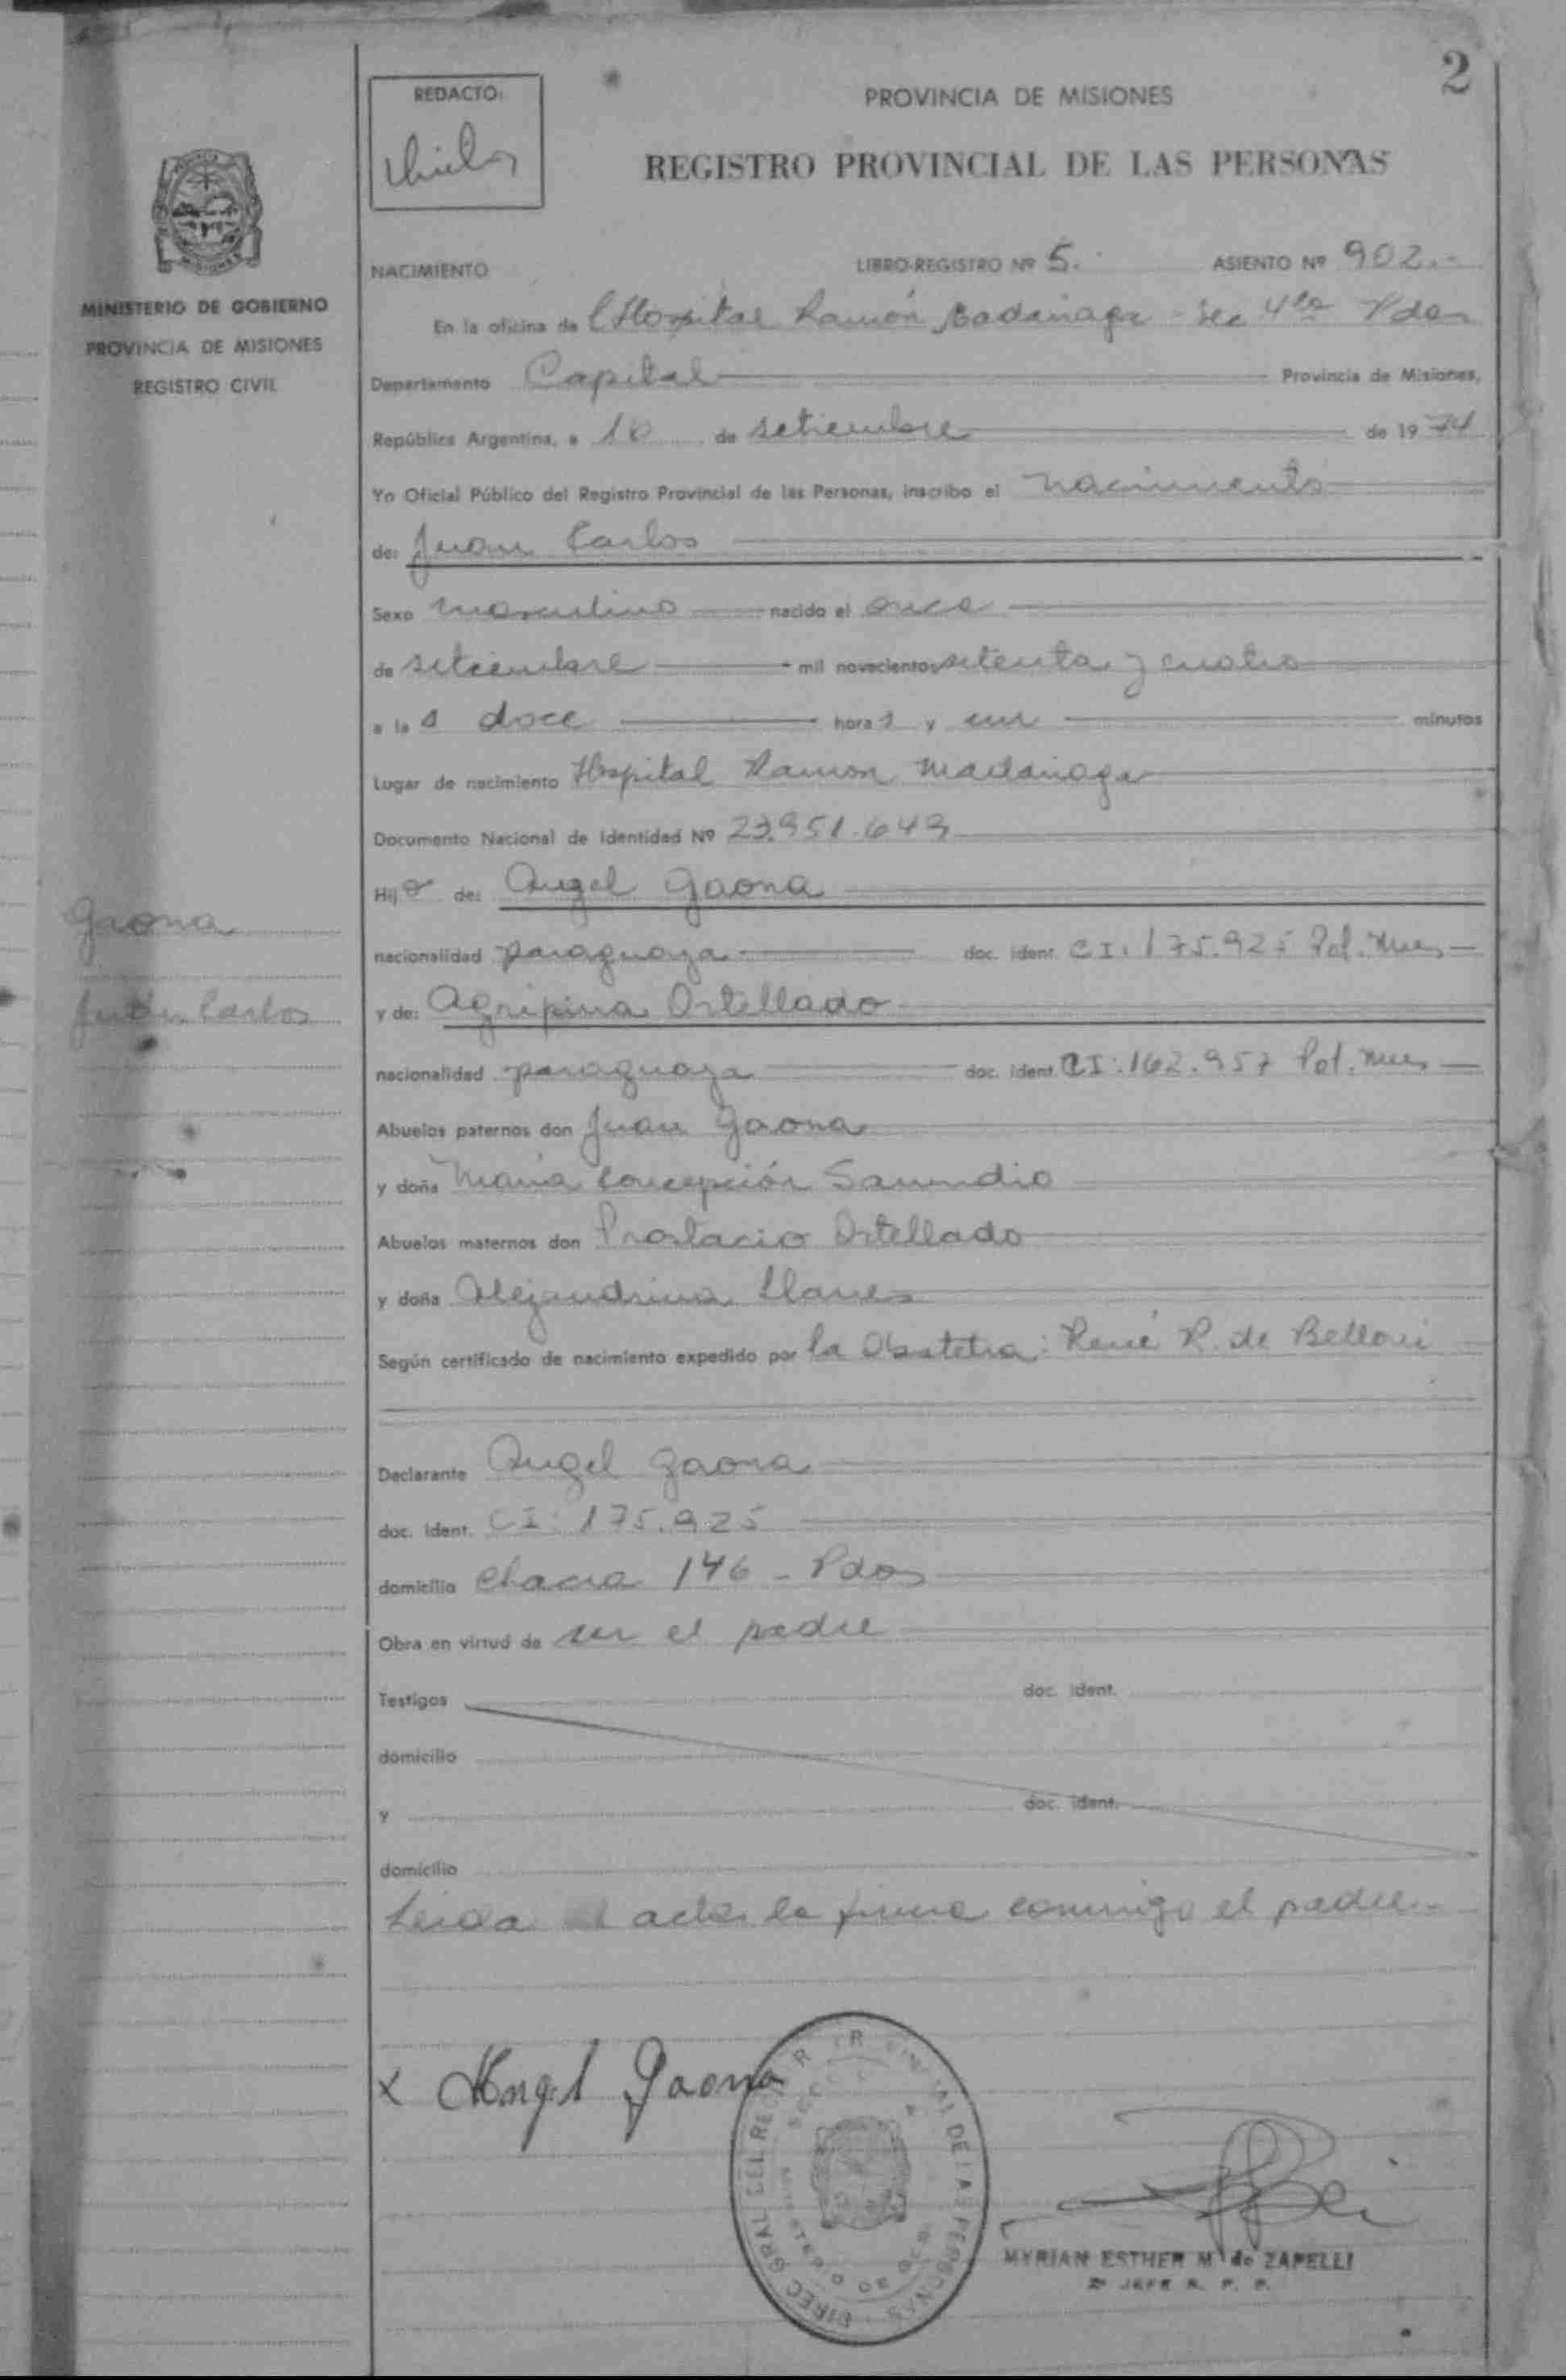 2
REDACTO:
PROVINCIA DE MISIONES
REGISTRO PROVINCIAL DE LAS PERSONAS
MINISTERIO DE GOBIERNO
PROVINCIA DE MISIONES
REGISTRO CIVIL
NACIMIENTO LIBRO-REGISTRO Nº 5. ASIENTO Nº 902.-
En la oficina de Hospital Ramón Madariaga - Sec 4ta Pdas
Departamento Capital Provincia de Misiones,
República Argentina, a 16 de setiembre de 1974
Yo Oficial Público del Registro Provincial de las Personas, inscribo el nacimiento
de: Juan Carlos
Sexo masculino nacido el once
de setiembre mil novecientos setenta y cuatro
a las doce horas y un minutos
Lugar de nacimiento Hospital Ramon Madariaga
Documento Nacional de Identidad Nº 23.951.649
Hijo de: Angel Gaona
Gaona
nacionalidad paraguaya doc. ident. CI. 175.925 Pol. Mnes
Juan Carlos
y de: Agripina Ortellado
nacionalidad paraguaya doc. ident. CI: 162.957 Pol. Mnes
Abuelos paternos don Juan Gaona
y doña Maria Concepción Samudio
Abuelos maternos don Protacio Ortellado
y doña Alejandrina Llanes
Según certificado de nacimiento expedido por la Obstetra: René R. de Belloni
Declarante Angel Gaona
doc. ident. CI: 175.925
domicilio Chacra 146 - Pdas
Obra en virtud de ser el padre
Testigos doc. ident.
domicilio
y doc. ident.
domicilio
Leida el acta la firma conmigo el padre.-
x Angel Gaona
MYRIAN ESTHER M. de ZAPELLI
2º JEFE R. P. P.